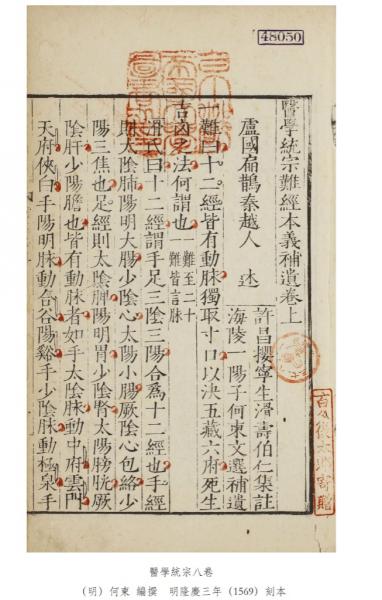 48050
醫學統宗難經本義補遺卷上
許昌攖寧生滑壽伯仁集註
盧國扁鵲秦越人 述
海陵一陽子何柬文選補遺
一難曰十二經皆有動脉獨取寸口以決五藏六府死生
吉凶之法何謂也一難至二十一難皆言脉
滑氏曰十二經謂手足三陰三陽合爲十二經也手經
則太陰肺陽明大腸少陰心太陽小腸厥陰心包絡少
陽三焦也足經則太陰脾陽明胃少陰腎太陽膀胱厥
陰肝少陽膽也皆有動脉者如手太陰脉動中府雲門
天府俠白手陽明脉動合谷陽谿手少陰脉動極泉手
醫學統宗八卷
(明) 何柬 編撰 明隆慶三年 (1569) 刻本